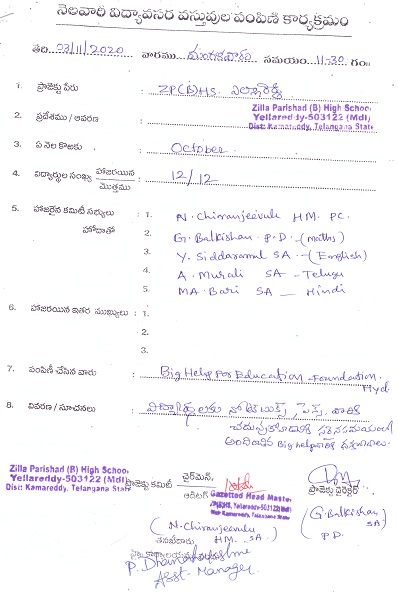 నెలవారీ విద్యావసర వస్తువుల పంపిణీ కార్యక్రమం
తేది 03/11/2020 వారము మంగళవారం సమయం 11-30 గం॥
1. ప్రాజెక్టు పేరు : ZP(B)HS. ఎల్లారెడ్డి
Zilla Parishad (B) High School
Yellareddy-503122 (Mdl)
Dist: Kamareddy, Telangana State
2. ప్రదేశము / ఆవరణ :
3. ఏ నెల కొఱకు : October
4. విద్యార్థుల సంఖ్య హాజరయిన / మొత్తము : 12/12
5. హాజరైన కమిటీ సభ్యులు : 1. N. Chiranjeevulu HM. PC.
హోదాతో 2. G. Balkishan P.D. (Maths)
3. Y. Siddaramul SA - (English)
4. A. Murali SA - Telugu
5. MA. Bari SA - Hindi
6. హాజరయిన ఇతర ముఖ్యులు : 1.
2.
3.
7. పంపిణీ చేసిన వారు : Big Help For Education - Foundation.
Hyd.
8. వివరణ / సూచనలు : విద్యార్థులకు నోట్ బుక్స్, పెన్స్, వారి
చదువుకోవడానికి సరైన సమయంలో
అందించిన Big help వారికి ధన్యవాదాలు.
Zilla Parishad (B) High School
Yellareddy-503122 (Mdl)
Dist: Kamareddy, Telangana State
ప్రాజెక్టు కమిటీ చైర్మెన్,
ఆడిటర్
Gazetted Head Master
ZP(B)HS, Yellareddy-503122(Mdl)
Dist: Kamareddy, Telangana State
ప్రాజెక్టు డైరెక్టర్
(N. Chiranjeevulu
HM. SA.)
(G. Balkishan
SA)
P.D.
P. Dhanalakshmi
Asst. Manager